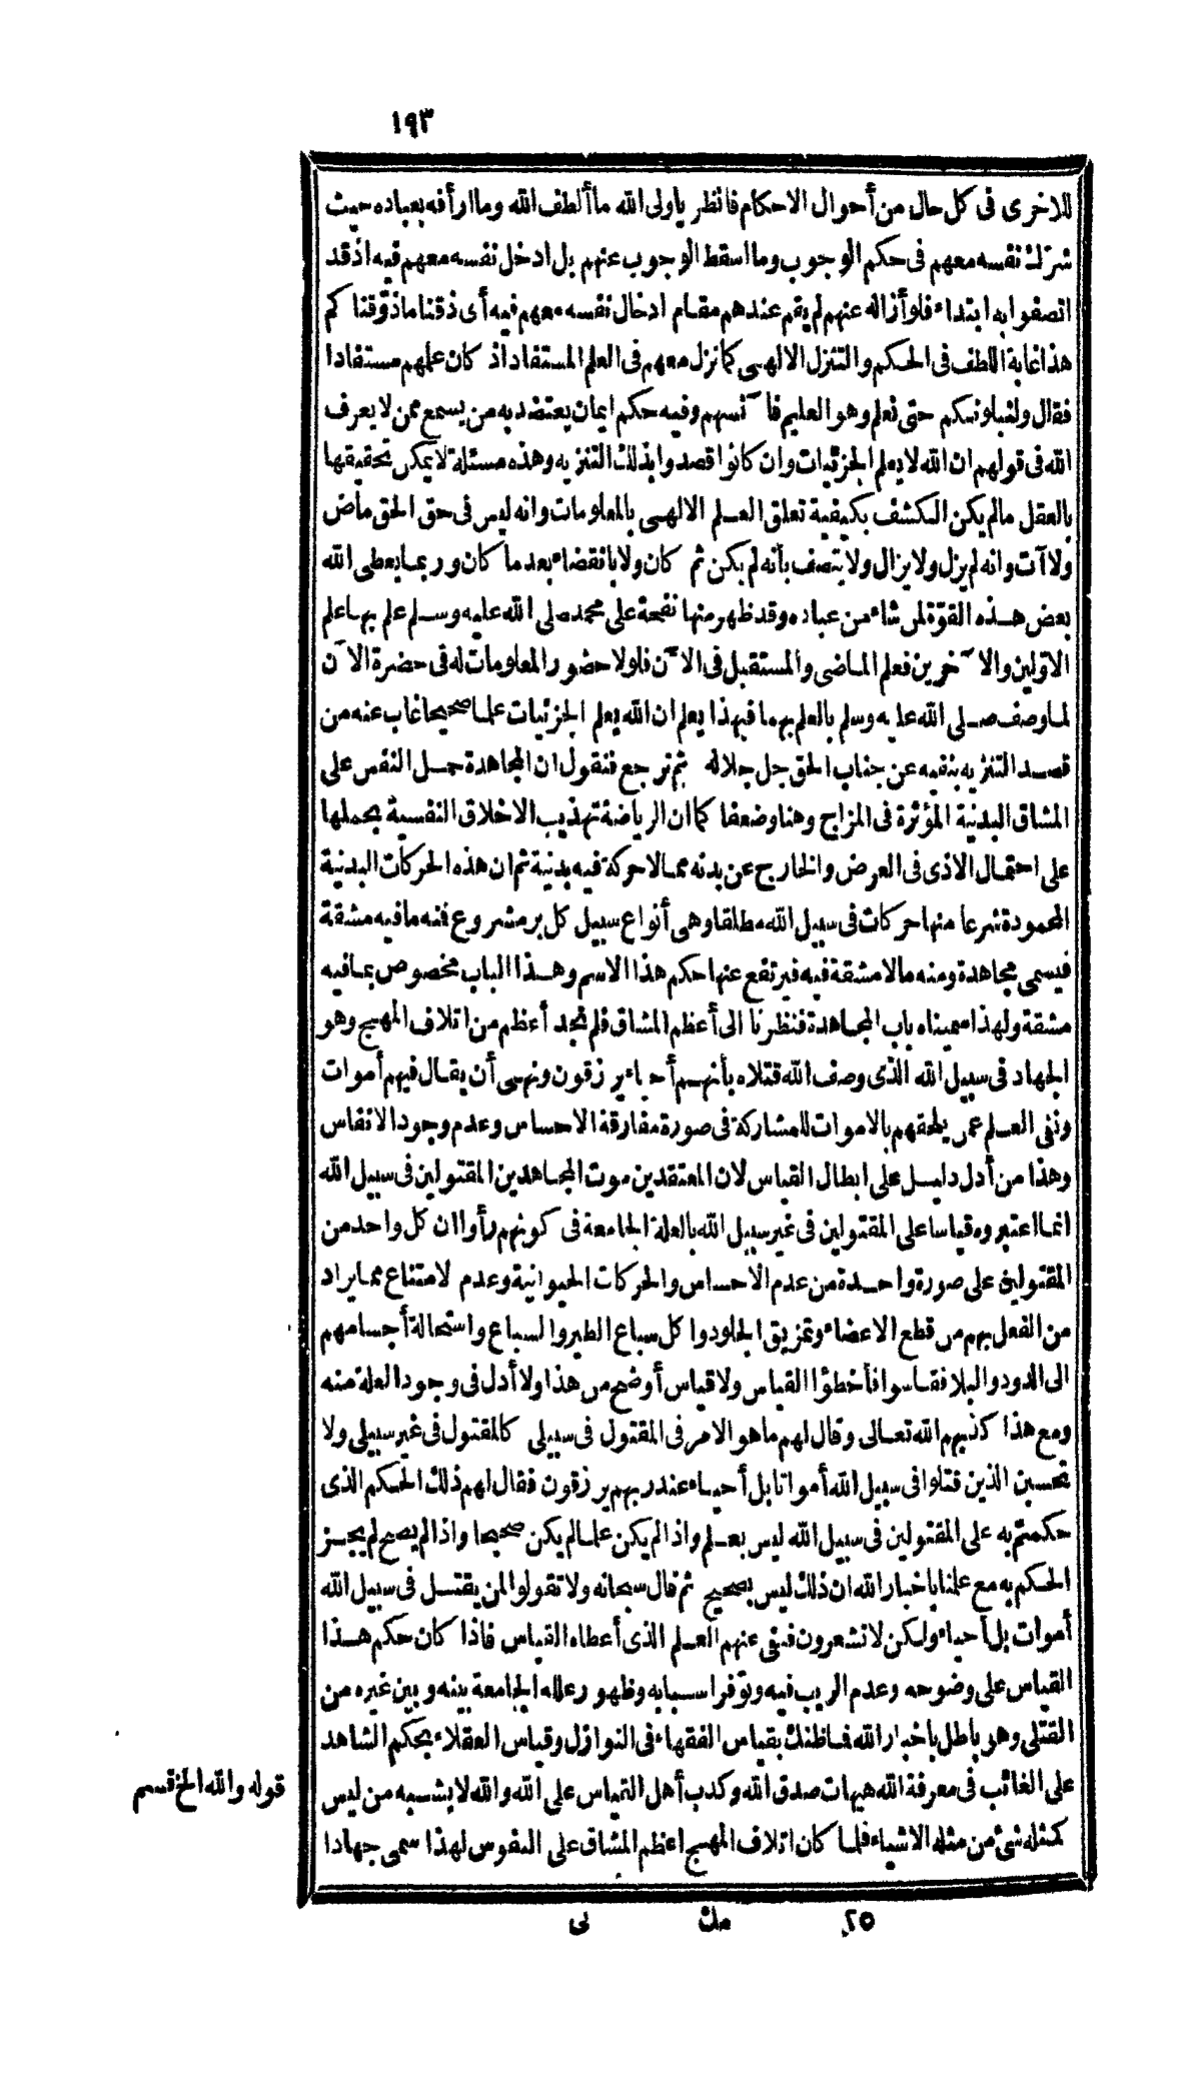 ١٩٣
للاخرى فى كل حال من أحوال الاحكام فانظر ياولى الله ما ألطف الله وما ارأفه بعباده حيث
شرّك نفسه معهم فى حكم الوجوب وما اسقط الوجوب عنهم بل ادخل نفسه معهم فيه اذ قد
اتصفوا به ابتداء فلو أزاله عنهم لم يقم عندهم مقام ادخال نفسه معهم فيه أى ذقنا ما ذوّقنا كم
هذا غاية اللطف فى الحكم والتنزل الالهى كما نزل معهم فى العلم المستفاد اذ كان علمهم مستفادا
فقال ولنبلونكم حتى نعلم وهو العليم فا آنسهم وفيه حكم ايمان يعتضد به من يسمع ممن لا يعرف
الله فى قولهم ان الله لا يعلم الجزئيات وان كانوا قصدوا بذلك التنزيه وهذه مسئلة لا يمكن تحقيقها
بالعقل مالم يكن الكشف بكيفية تعلق العلم الالهى بالمعلومات وانه ليس فى حق الحق ماض
ولا آت وانه لم يزل ولا يزال ولا يتصف بأنه لم يكن ثم كان ولا بانقضاء بعد ما كان وربما يعطى الله
بعض هذه القوّة لمن شاء من عباده وقد ظهر منها نفحة على محمد صلى الله عليه وسلم علم بها علم
الاوّلين والا آخرين فعلم الماضى والمستقبل فى الا آن فلولا حضور المعلومات له فى حضرة الا آن
لما وصف صلى الله عليه وسلم بالعلم بهما فبهذا يعلم ان الله يعلم الجزئيات علما صحيحا غاب عنه من
قصد التنزيه بنفيه عن جناب الحق جل جلاله ثم نرجع فنقول ان المجاهدة حمل النفس على
المشاق البدنية المؤثرة فى المزاج وهنا وضعفا كما ان الرياضة تهذيب الاخلاق النفسية بحملها
على احتمال الاذى فى العرض والخارج عن بدنه مما لا حركة فيه بدنية ثم ان هذه الحركات البدنية
المحمودة شرعا منها حركات فى سبيل الله مطلقا وهى أنواع سبيل كل بر مشروع فنه ما فيه مشقة
فيسمى مجاهدة ومنه مالا مشقة فيه فيرتفع عنها حكم هذا الاسم وهذا الباب مخصوص بما فيه
مشقة ولهذا سميناه باب المجاهدة فنظرنا الى أعظم المشاق فلم نجد أعظم من اتلاف المهج وهو
الجهاد فى سبيل الله الذى وصف الله قتلاه بأنهم أحياء يرزقون ونهى أن يقال فيهم أموات
ونفى العلم عمن يلحقهم بالاموات للمشاركة فى صورة مفارقة الاحساس وعدم وجود الانفاس
وهذا من أدل دليل على ابطال القياس لان المعتقدين موت المجاهدين المقتولين فى سبيل الله
انما اعتبروه قياسا على المقتولين فى غير سبيل الله بالعلة الجامعة فى كونهم رأوا ان كل واحد من
المقتولين على صورة واحدة من عدم الاحساس والحركات الحيوانية وعدم لامتناع مما يراد
من الفعل بهم من قطع الاعضاء وتمزيق الجلود وا كل سباع الطير والسباع واستحالة أجسامهم
الى الدود والبلا فقاسوا فأخطؤا القياس ولا قياس أوضح من هذا ولا أدل فى وجود العلة منه
ومع هذا كذبهم الله تعالى وقال لهم ما هو الامر فى المقتول فى سبيلى كالمقتول فى غير سبيلى ولا
تحسبن الذين قتلوا فى سبيل الله أمواتا بل أحياء عند ربهم يرزقون فقال لهم ذلك الحكم الذى
حكمتم به على المقتولين فى سبيل الله ليس بعلم واذا لم يكن علما لم يكن صحيحا واذا لم يصح لم يجز
الحكم به مع علمنا باخبار الله ان ذلك ليس بصحيح ثم قال سبحانه ولا تقولوا لمن يقتل فى سبيل الله
أموات بل أحياء ولكن لا تشعرون فنفى عنهم العلم الذى أعطاه القياس فاذا كان حكم هذا
القياس على وضوحه وعدم الريب فيه وتوفر اسبابه وظهور علله الجامعة بينه وبين غيره من
القتلى وهو باطل باخبار الله فما ظنك بقياس الفقهاء فى النوازل وقياس العقلاء بحكم الشاهد
على الغائب فى معرفة الله هيهات صدق الله وكذب أهل القياس على الله والله لا يشبه من ليس
قوله والله الخ قسم
كمثله شئ من مثله الاشياء فلما كان اتلاف المهج اعظم المشاق على النفوس لهذا سمى جهادا
٢٥ مك نى